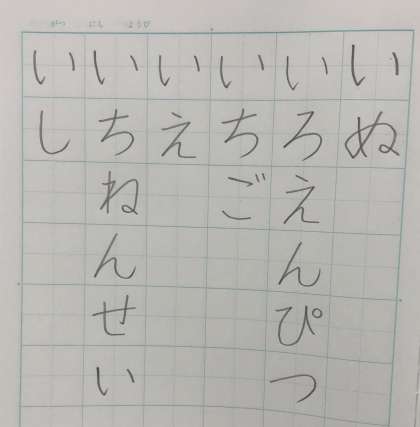 がつ にち ようび
いぬ
いろえんぴつ
いちご
いえ
いちねんせい
いし